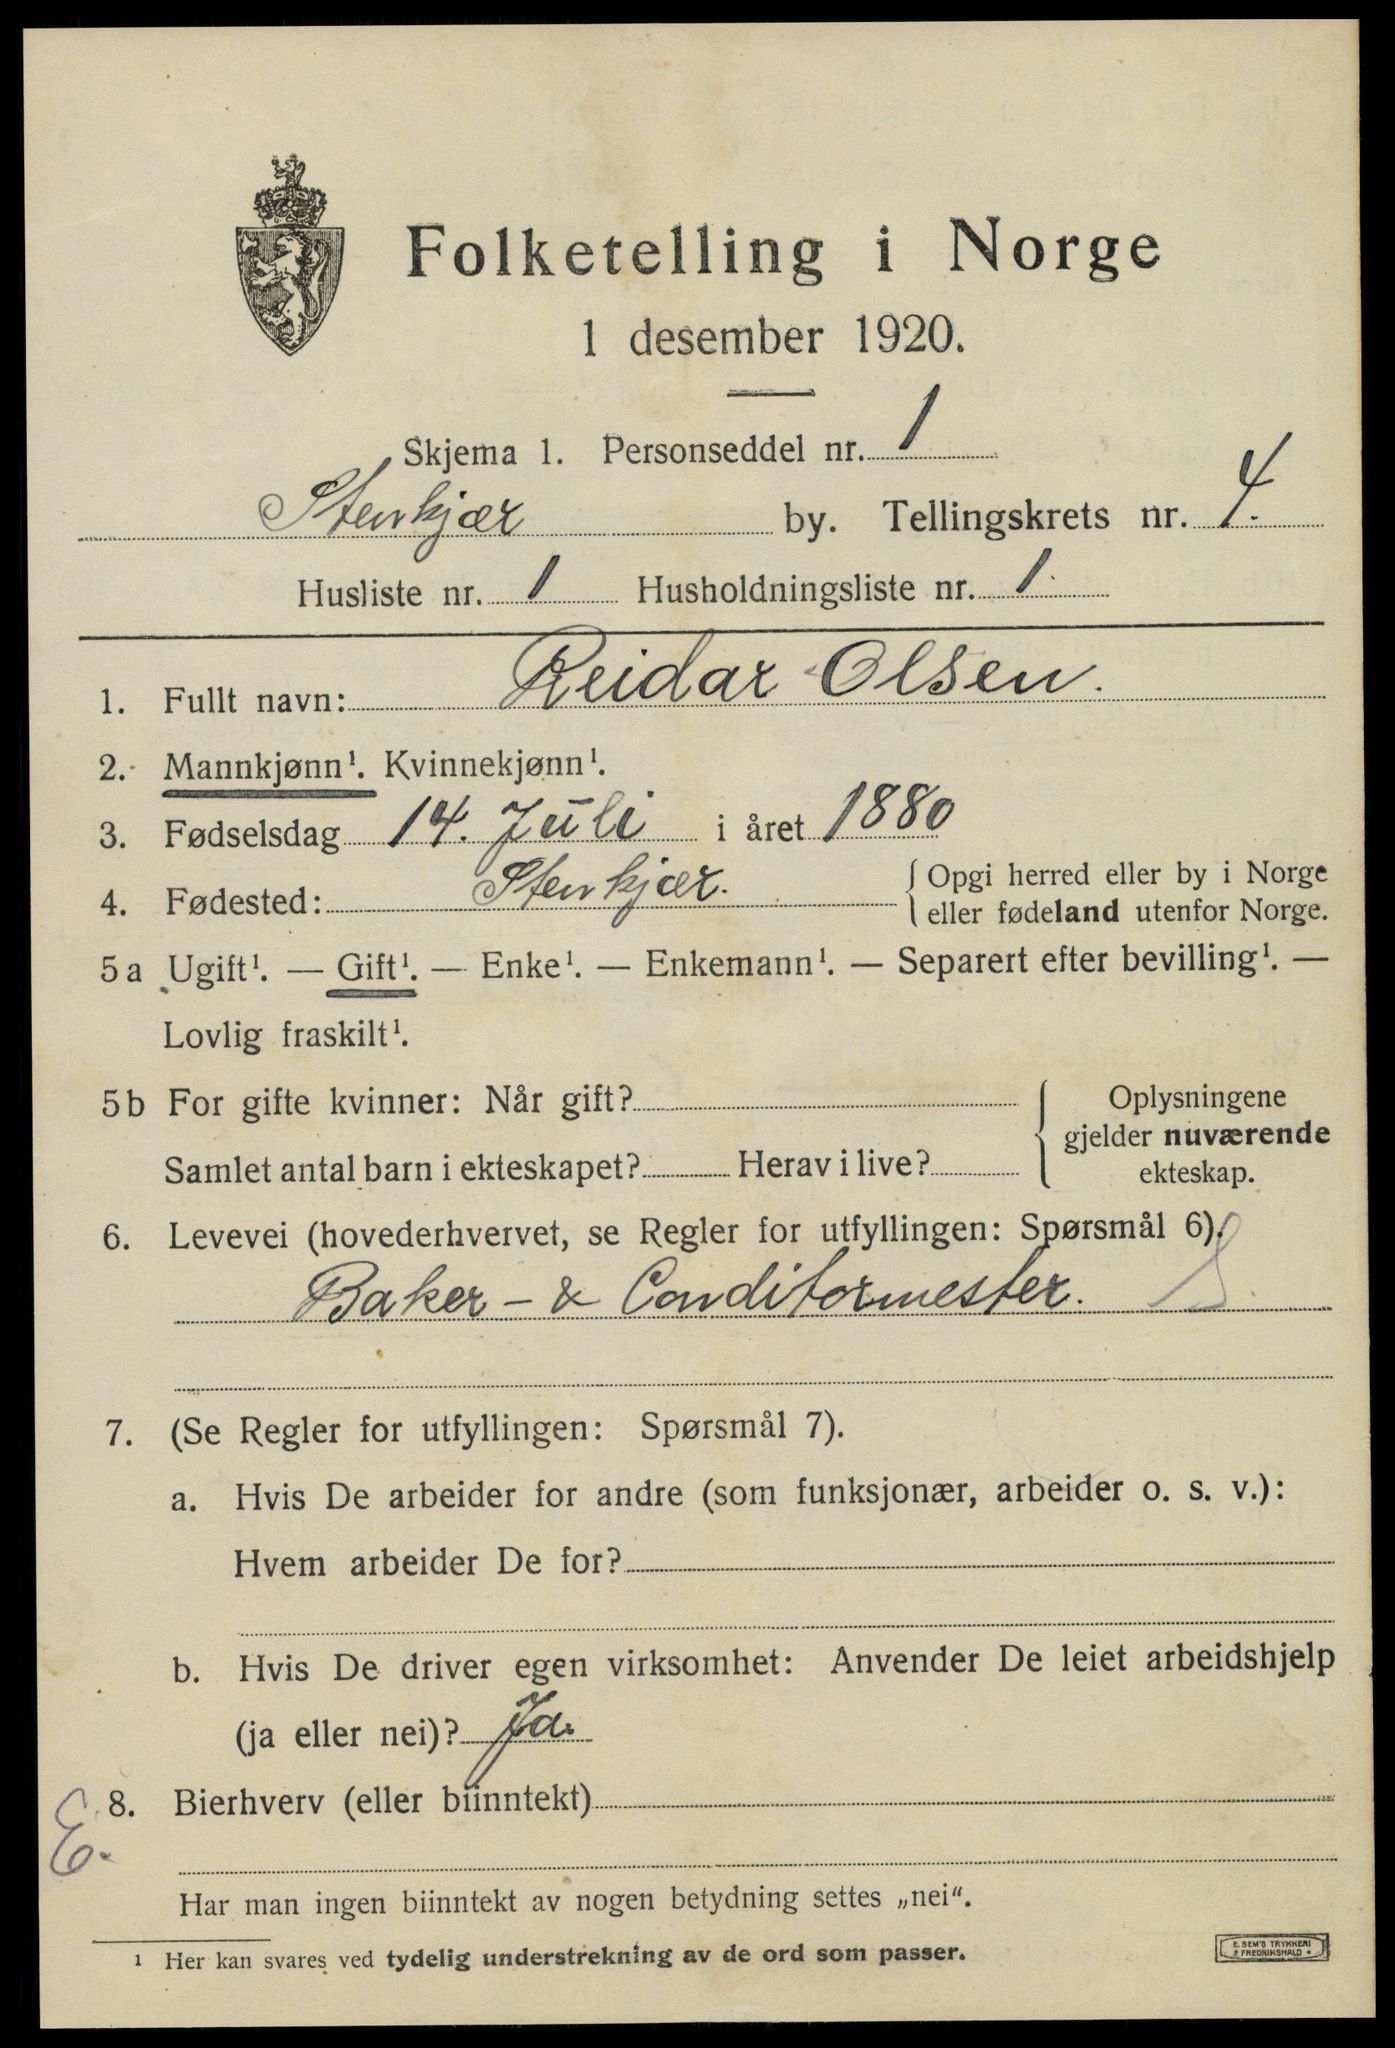 Folketelling i Norge
1 desember 1920.
Skjema 1. Personseddel nr. 1
Stenkjær by. Tellingskrets nr. 4.
Husliste nr. 1 Husholdningsliste nr. 1.
1. Fullt navn: Reidar Olsen.
2. Mannkjønn¹. Kvinnekjønn¹.
3. Fødselsdag 14. Juli i året 1880
4. Fødested: Stenkjær. { Opgi herred eller by i Norge
eller fødeland utenfor Norge.
5a Ugift¹. — Gift¹. — Enke¹. — Enkemann¹. — Separert efter bevilling¹. —
Lovlig fraskilt¹.
5b For gifte kvinner: Når gift? { Oplysningene
gjelder nuværende
Samlet antal barn i ekteskapet? Herav i live? ekteskap.
6. Levevei (hovederhvervet, se Regler for utfyllingen: Spørsmål 6).
Baker- & Conditormester. S.
7. (Se Regler for utfyllingen: Spørsmål 7).
a. Hvis De arbeider for andre (som funksjonær, arbeider o. s. v.):
Hvem arbeider De for?
b. Hvis De driver egen virksomhet: Anvender De leiet arbeidshjelp
(ja eller nei)? Ja.
E. 8. Bierhverv (eller biinntekt)
Har man ingen biinntekt av nogen betydning settes „nei“.
¹ Her kan svares ved tydelig understrekning av de ord som passer.
E. SEM'S TRYKKERI
FREDRIKSHALD